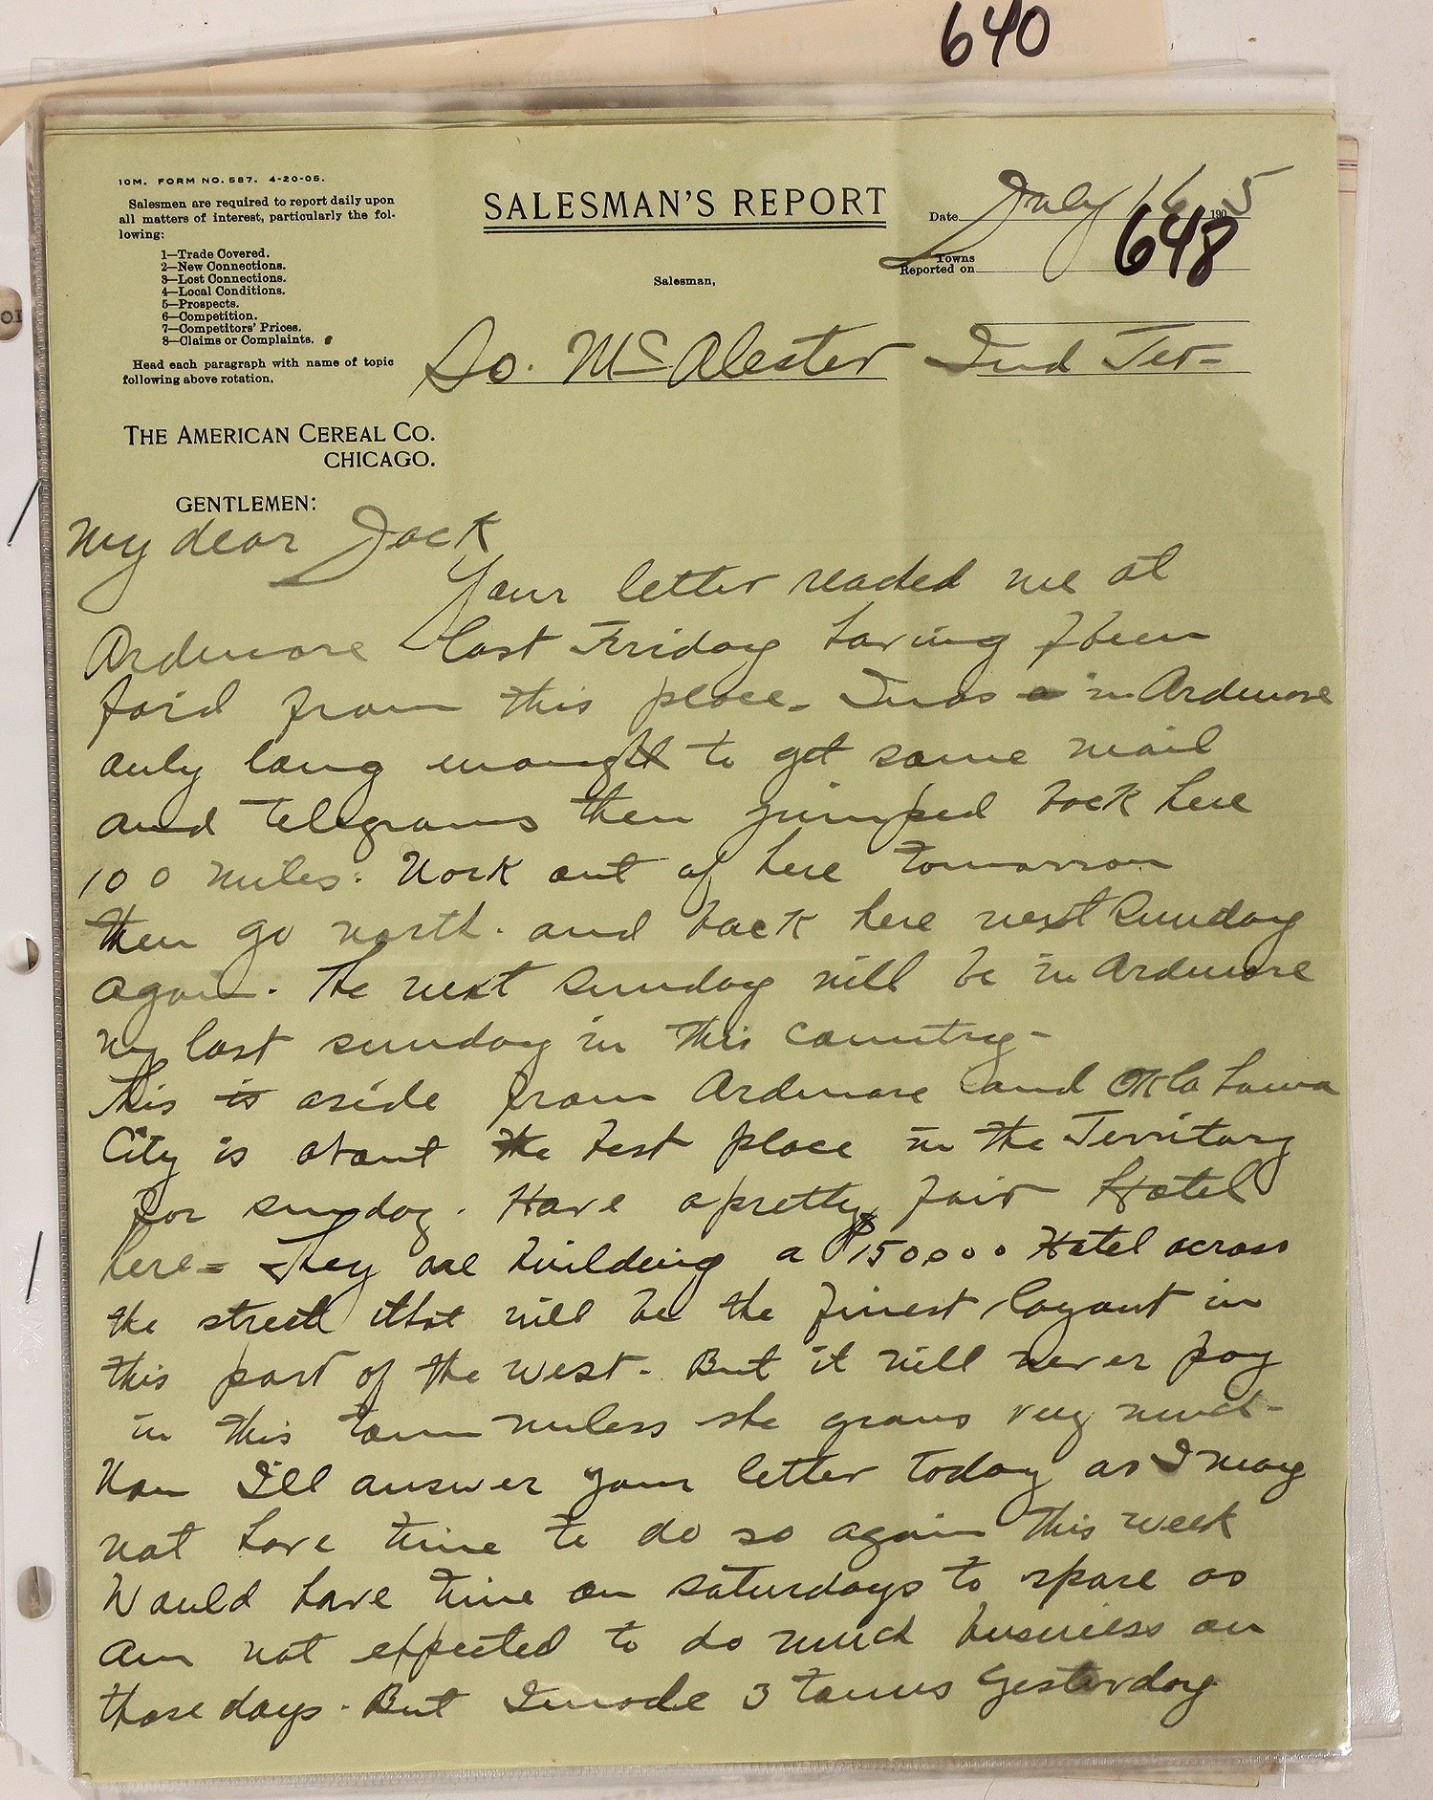 640
10M. FORM NO. 587. 4-20-05.
Salesmen are required to report daily upon
all matters of interest, particularly the fol-
lowing:
1—Trade Covered.
2—New Connections.
3—Lost Connections.
4—Local Conditions.
5—Prospects.
6—Competition.
7—Competitors' Prices.
8—Claims or Complaints.
Head each paragraph with name of topic
following above rotation.
SALESMAN'S REPORT
Salesman,
Date July 16 1905
648
Towns
Reported on
So. McAlester Ind Ter-
THE AMERICAN CEREAL CO.
CHICAGO.
GENTLEMEN:
My dear Jack
Your letter reached me at
Ardmore last Friday having been
ford from this place. I was in Ardmore
only long enough to get some mail
and telegrams then jumped back here
100 miles. Work out of here tomorrow
then go north. and back here next Sunday
again. The next Sunday will be in Ardmore
my last sunday in this country-
This is aside from Ardmore and Oklahoma
City is about the best place in the Territory
for sunday. Have a pretty fair Hotel
here= They are building a $150000 Hotel across
the street that will be the finest layout in
this part of the west. But it will never pay
in this town unless she grows very much-
Now I'll answer your letter today as I may
not have time to do so again this week
Would have time on saturdays to spare as
am not expected to do much business on
those days. But I made 3 towns yesterday